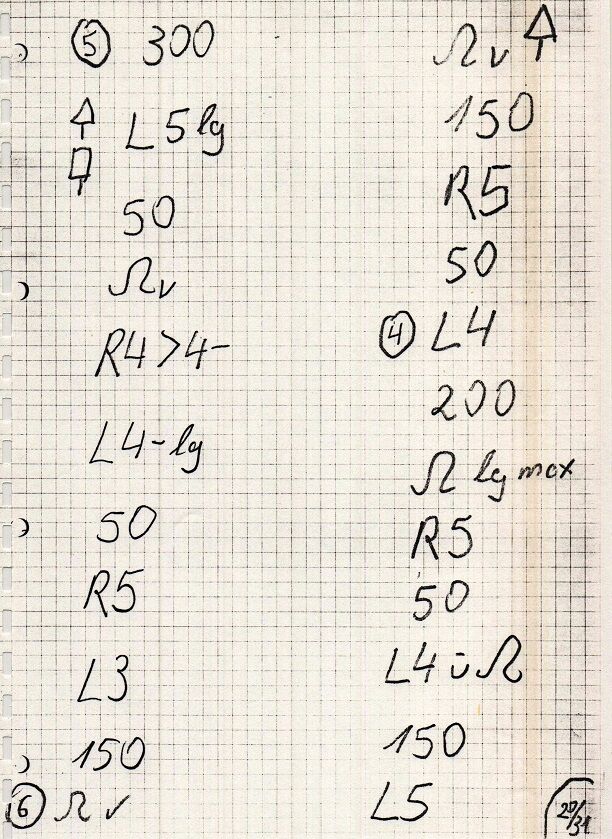 5 300
L5 lg
50
Ωv
R4>4-
L4-lg
50
R5
L3
150
6 Ω v
Ω v
150
R5
50
4 L4
200
Ω lg max
R5
50
L4 ü Ω
150
L5
20/31